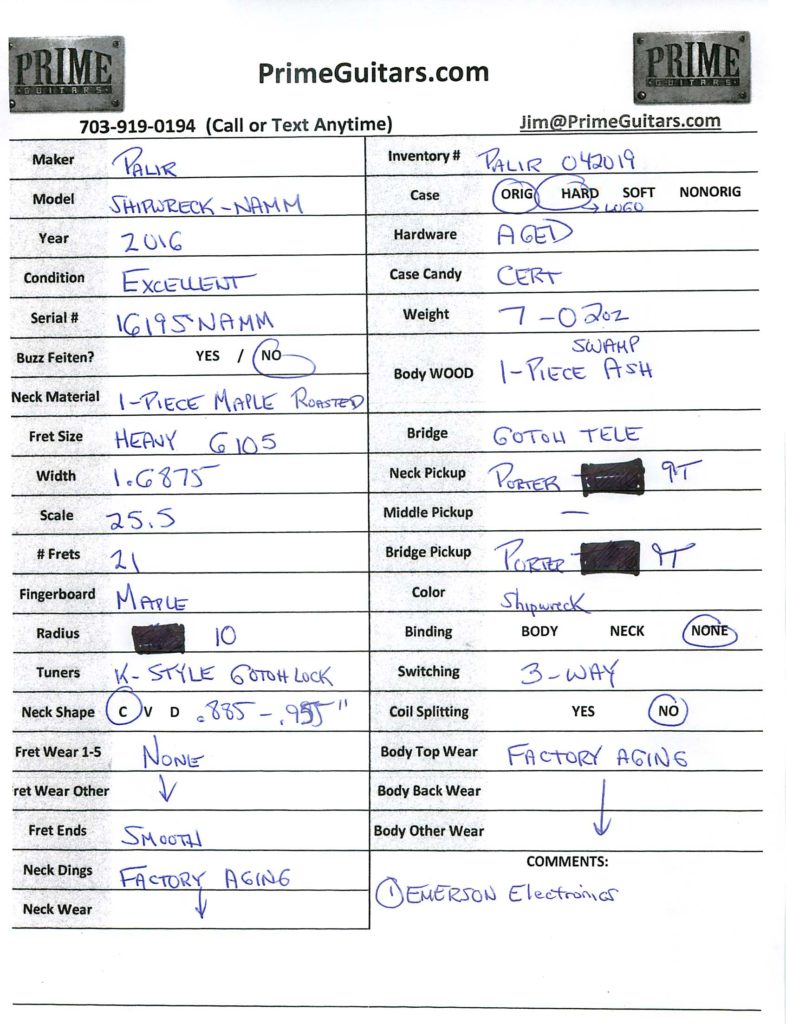 PRIME
GUITARS
PrimeGuitars.com
PRIME
GUITARS
703-919-0194 (Call or Text Anytime)
Jim@PrimeGuitars.com
Maker PALIR
Model SHIPWRECK-NAMM
Year 2016
Condition EXCELLENT
Serial # 16195NAMM
Buzz Feiten? YES / NO
Neck Material 1-PIECE MAPLE ROASTED
Fret Size HEAVY 6105
Width 1.6875
Scale 25.5
# Frets 21
Fingerboard MAPLE
Radius 10
Tuners K-STYLE GOTOH LOCK
Neck Shape C V D .885-.955"
Fret Wear 1-5 NONE
ret Wear Other
Fret Ends SMOOTH
Neck Dings FACTORY AGING
Neck Wear
Inventory # PALIR 042019
Case ORIG HARD SOFT NONORIG
→ LOGO
Hardware AGED
Case Candy CERT
Weight 7-02oz
SWAMP
Body WOOD 1-PIECE ASH
Bridge GOTOH TELE
Neck Pickup PORTER 9T
Middle Pickup —
Bridge Pickup PORTER 9T
Color Shipwreck
Binding BODY NECK NONE
Switching 3-WAY
Coil Splitting YES NO
Body Top Wear FACTORY AGING
Body Back Wear
Body Other Wear
COMMENTS:
① EMERSON Electronics